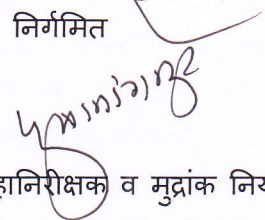 निर्गमित
हानिरीक्षक व मुद्रांक निय